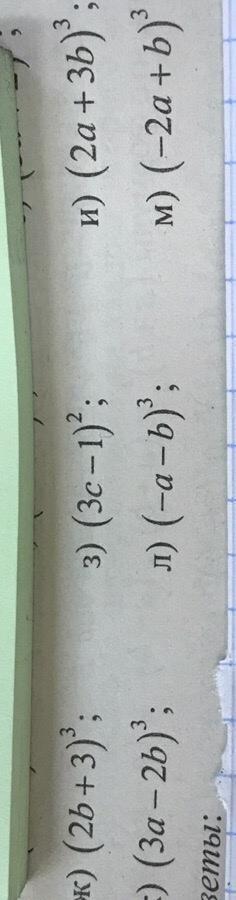 ж) (2b + 3)³; з) (3c − 1)²; и) (2a + 3b)³;
) (3a − 2b)³; л) (−a − b)³; м) (−2a + b)³
веты: